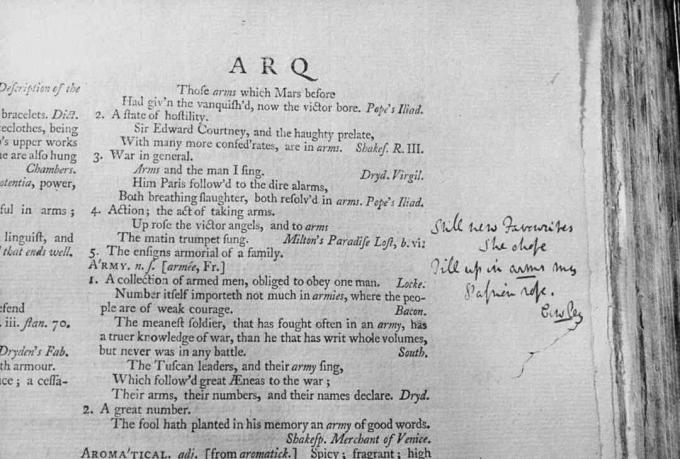 ARQ
Description of the
bracelets. Dict.
eclothes, being
's upper works
ne are also hung
Chambers.
otentia, power,
ful in arms;
linguist, and
that ends well.
efend
. iii. stan. 70.
Dryden's Fab.
th armour.
ce; a cessa-
Thoſe arms which Mars before
Had giv'n the vanquiſh'd, now the victor bore. Pope's Iliad.
2. A ſtate of hoſtility.
Sir Edward Courtney, and the haughty prelate,
With many more confed'rates, are in arms. Shakeſ. R. III.
3. War in general.
Arms and the man I ſing. Dryd. Virgil.
Him Paris follow'd to the dire alarms,
Both breathing ſlaughter, both reſolv'd in arms. Pope's Iliad.
4. Action; the act of taking arms.
Up roſe the victor angels, and to arms
The matin trumpet ſung. Milton's Paradiſe Loſt, b. vi.
5. The enſigns armorial of a family.
A'RMY. n. ſ. [armée, Fr.]
1. A collection of armed men, obliged to obey one man. Locke.
Number itſelf importeth not much in armies, where the peo-
ple are of weak courage. Bacon.
The meaneſt ſoldier, that has fought often in an army, has
a truer knowledge of war, than he that has writ whole volumes,
but never was in any battle. South.
The Tuſcan leaders, and their army ſing,
Which follow'd great Æneas to the war;
Their arms, their numbers, and their names declare. Dryd.
2. A great number.
The fool hath planted in his memory an army of good words.
Shakeſp. Merchant of Venice.
AROMA'TICAL. adj. [from aromatick.] Spicy; fragrant; high
Still new Favourites
She choſe
Till up in arms my
Paſſion roſe.
Cowley